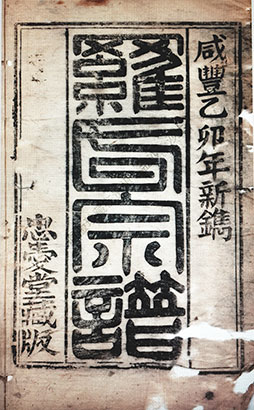 咸豐乙卯年新鐫
羅氏宗譜
忠愛堂藏版